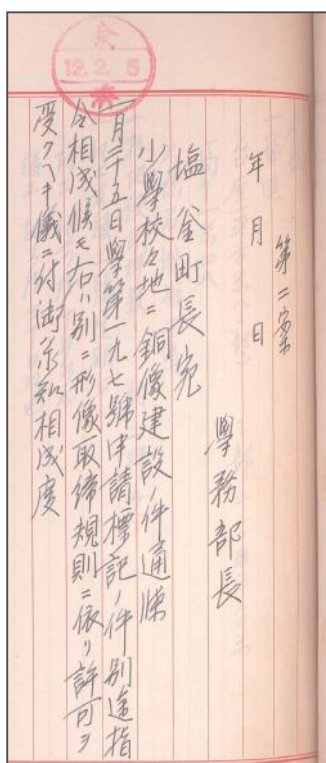 第二案
年 月 日
學務部長
塩釜町長宛
小學校々地ニ銅像建設ノ件通牒
一月二十五日學第一九七號申請標記ノ件別途指
令相成候モ右ハ別ニ形像取締規則ニ依リ許可ヲ
受クヘキ儀ニ付御承知相成度
12.2.5